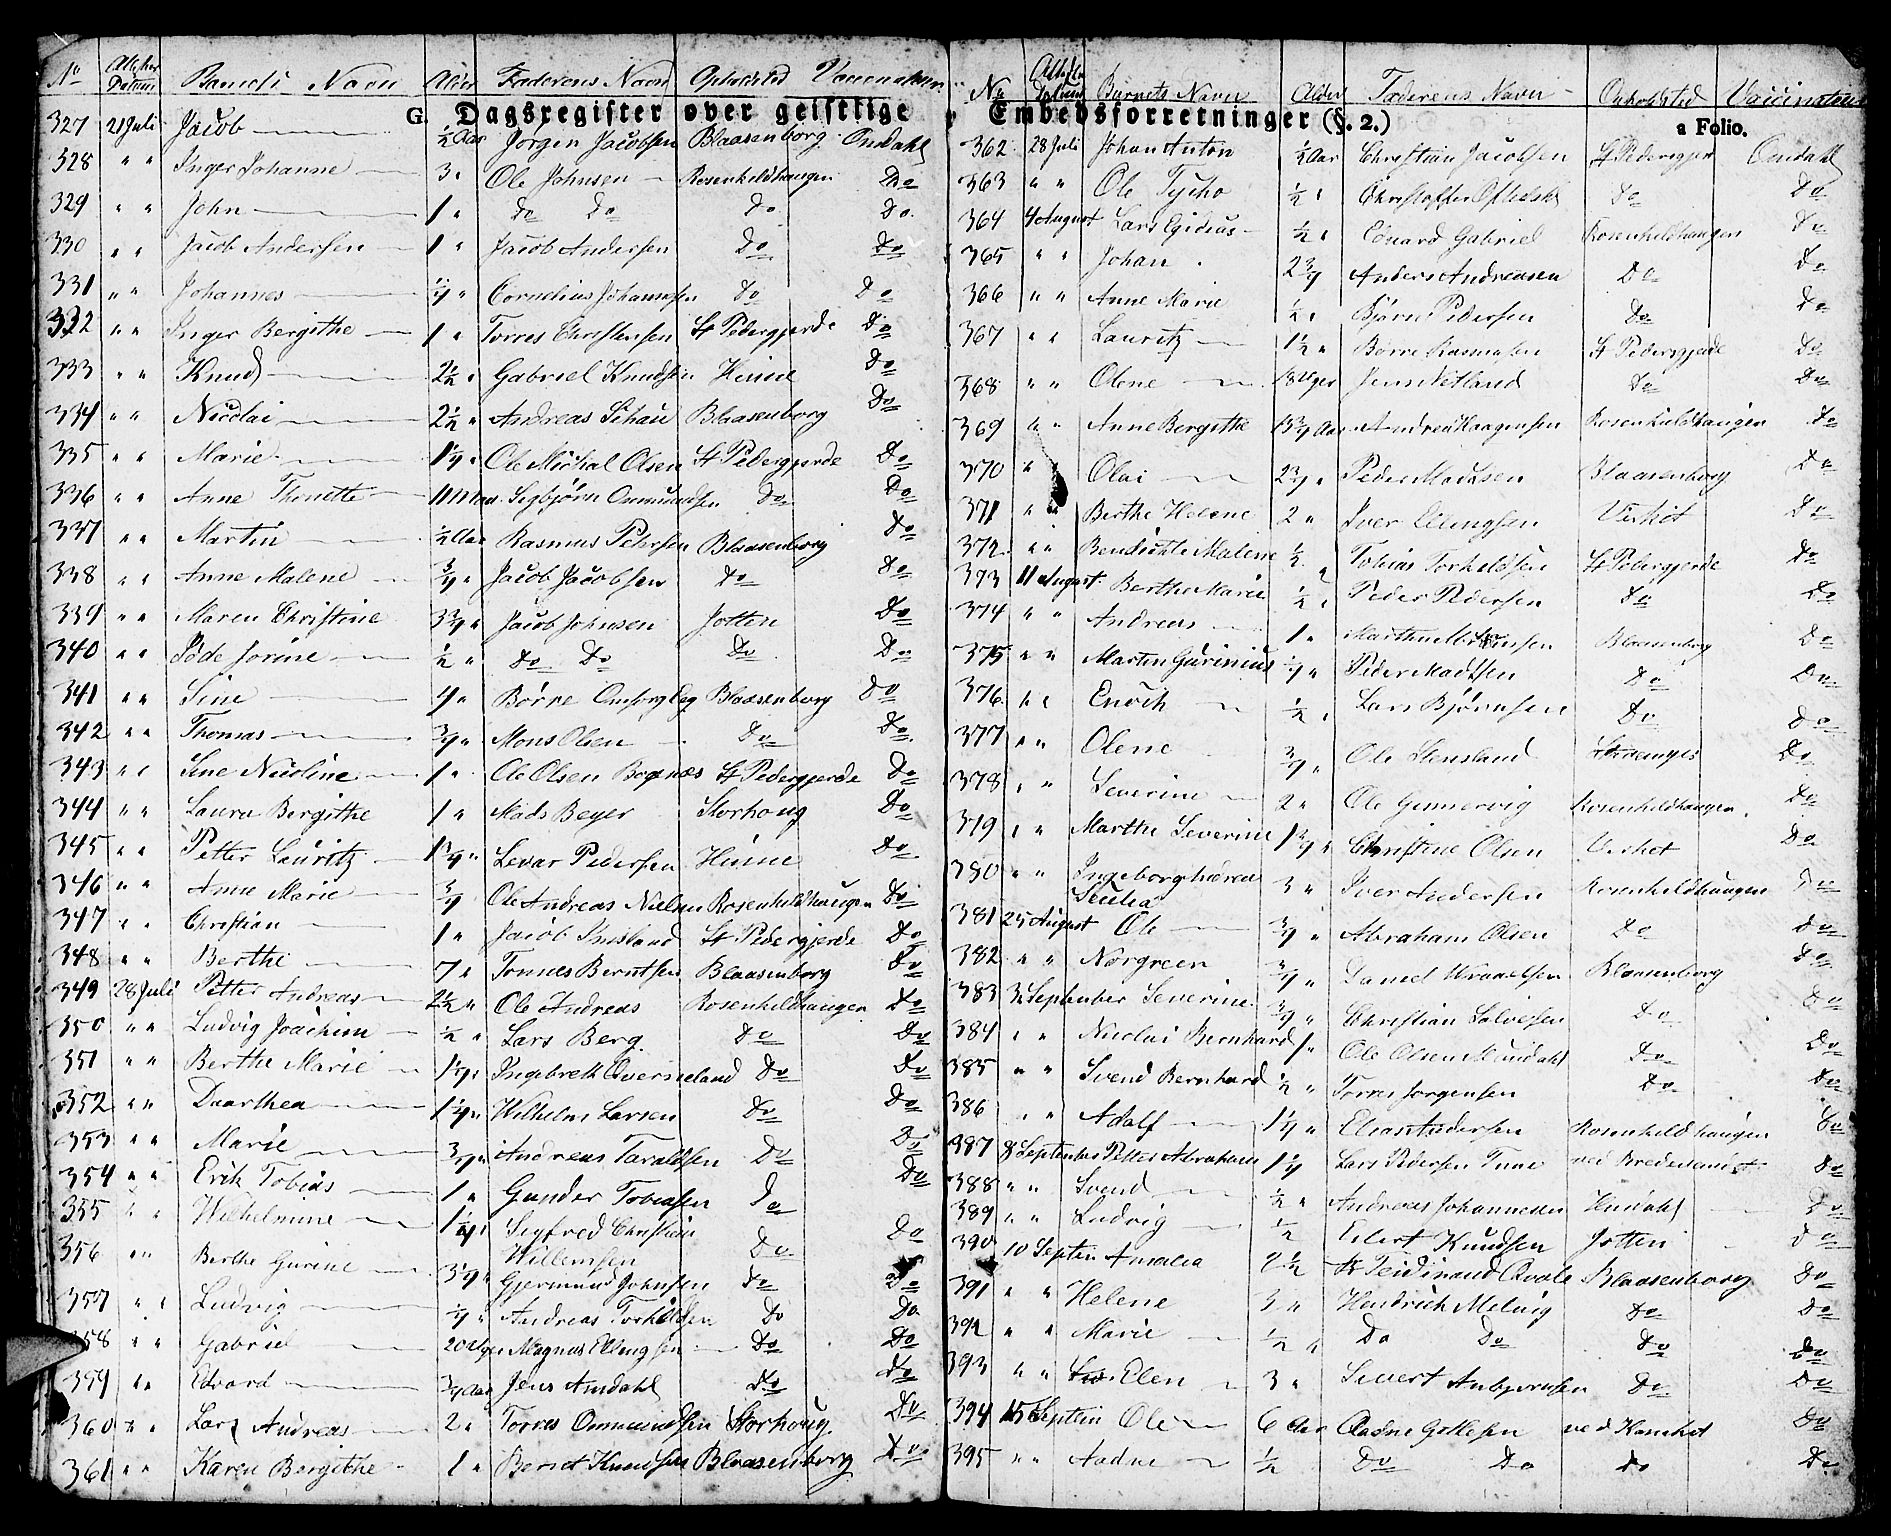 No Attester Datum Barnets Navn Alder Faderens Navn Opholdsted Vaccinateur
G. Dagsregister over geistlige
327 21 Juli Jacob ½ Aar Jørgen Jacobsen Blaasenborg Omdahl
328 " " Inger Johanne 3 " Ole Johnsen Rosenkildhaugen Do
329 " " John 1 " Do Do Do Do
330 " " Jacob Andersen 1 " Jacob Andersen Do Do
331 " " Johannes " Cornelius Johannesen Do Do
332 " " Inger Bergithe 1 " Torres Christensen St Pedergjerde Do
333 " " Knud 2½ " Gabriel Knudsen Do
334 " " Nicolai 2½ " Andreas Schau Blaasenborg Do
335 " " Marie " Ole Michal Olsen St Pedergjerde Do
336 " " Anne Thonette 11 Maan. Segbjørn Ommundsen Do Do
337 " " Martin ½ Aar Rasmus Petersen Blaasenborg Do
338 " " Anne Malene ¾ " Jacob Jacobsen Do Do
339 " " Maren Christine 3¾ " Jacob Johnsen Jotten Do
340 " " Jorine ½ " Do Do Do Do
341 " " Sine " Børre Blaasenborg Do
342 " " Thomas ¾ " Mons Olsen Do Do
343 " " Sine Nicoline 1 " Ole Olsen St Pedergjerde Do
344 " " Laura Bergithe 1 " Mads Beyer Storhoug Do
345 " " Petter Lauritz " Levar Pedersen Do
346 " " Anne Marie ¾ Ole Andreas Nielsen Rosenkildhaugen Do
347 " " Christian 1 " Jacob St Pedergjerde Do
348 " " Berthe 7 " Tonnes Berntsen Blaasenborg Do
349 28 Juli Petter Andreas 2½ " Ole Andreas Rosenkildhaugen Do
350 " " Ludvig Joachim ½ " Lars Berg Do Do
351 " " Berthe Marie " Ingebrett Do Do
352 " " Daarthea 1¼ " Wilhelm Larsen Do Do
353 " " Marie " Andreas Taraldsen Do Do
354 " " Erik Tobias 1 " Gunder Tobiasen Do Do
355 " " Wilhelmine " Segfred Christian
Willemsen Do Do
356 " " Berthe Gurine " Gjermund Johnsen Do Do
357 " " Ludvig " Andreas Torkildsen Do Do
358 " " Gabriel 20 Uger Magnus Ellingsen Do Do
359 " " Edvard ¾ Aar Jens Amdahl Do Do
360 " " Lars Andreas 2 " Torres Ommundsen Storhoug Do
361 " " Karen Bergithe 1 " Bernt Knudsen Blaasenborg Do
No Attester Datum Barnets Navn Alder Faderens Navn Opholdsted Vaccinateur
Embedsforretninger (§. 2.) a Folio.
362 28 Juli Johan Anton ½ Aar Christian Jacobsen St Pedersgjer Omdahl
363 " " Ole Tycho ½ " Christoffer Do Do
364 4 August Lars Egidius ½ " Edvard Gabriel Rosenkildhaugen Do
365 " " Johan 2¾ Anders Andreasen Do Do
366 " " Anne Marie ½ " Bjørn Pedersen Do Do
367 " " Lauritz 1½ " Børre Rasmusen St Pedersgjerde Do
368 " " Olene 18 Uger Jens Netland Do Do
369 " " Anne Bergithe Aar Andrea Haagensen Rosenkildhaugen Do
370 " " Olai 2¾ " Peder Madsen Blaasenborg Do
371 " " Berthe Helene 2 " Iver Ellingsen Verket Do
372 " " Malene ½ " Tobias Torkeldsen St Pedergjerde Do
373 11 August Berthe Marie ½ " Peder Pedersen Do Do
374 " " Andreas 1 " Blaasenborg Do
375 " " Martin Gurinius " Peder Madsen Do Do
376 " " Enock ½ " Lars Bjørnsen Do Do
377 " " Olene ¾ " Ole Stensland Do
378 " " Severine 2 " Ole Gunnervig Rosenkildhaugen Do
379 " " Marthe Severine 1¾ " Christine Olsen Verket Do
380 " " Ingeborg
3 " Iver Andersen Rosenkildhaugen Do
381 25 August Ole ¾ " Abraham Olsen Do Do
382 " " Norgreen ¾ " Daniel Blaasenborg Do
383 3 September Severine ¾ " Christian Salvesen Do Do
384 " " Nicolai Bernhard 1 " Ole Olsen Do Do
385 " " Svend Bernhard ½ " Torres Jørgensen Do Do
386 " " Adolf 1¼ " Elias Andersen Rosenkildhaugen Do
387 8 September Petter Abraham 1¼ Lars Pedersen Tune ved Do
388 " " Svend ½ " Andreas Johannesen Do
389 " " Ludvig ½ Eilert Knudsen Jotten Do
390 10 Septem Amalea 2½ Ferdinand Qvale Blaasenborg Do
391 " " Helene 3 " Hendrich Do Do
392 " " Marie ½ " Do Do Do Do
393 " " Elen 3 " Sivert Do Do
394 15 Septem Ole 6 Aar Aadne Gottesen ved Do
395 " " Aadne ½ Do Do Do Do